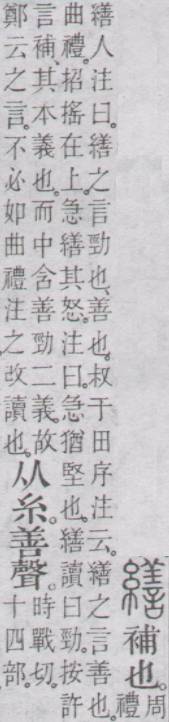 繕補也。周
禮
繕人注曰。繕之言勁也、善也。叔于田序注云。繕之言善也。
曲禮。招搖在上。急繕其怒。注曰。急猶堅也。繕讀曰勁。按許
言補、其本義也。而中含善勁二義。故
鄭云之言。不必如曲禮注之改讀也。
从糸。善聲。
時戰切。
十四部。